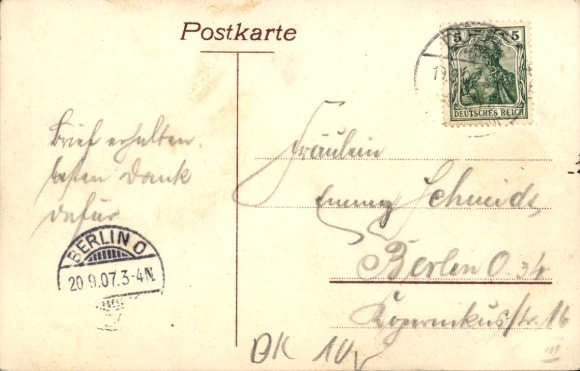 Postkarte
5 5
DEUTSCHES REICH
Brief erhalten.
besten Dank
dafür
BERLIN O
20.9.07.3-4N.
Fräulein
Emmy Schmidt
Berlin O.34
Kopernikusstr. 16
III
DK 10